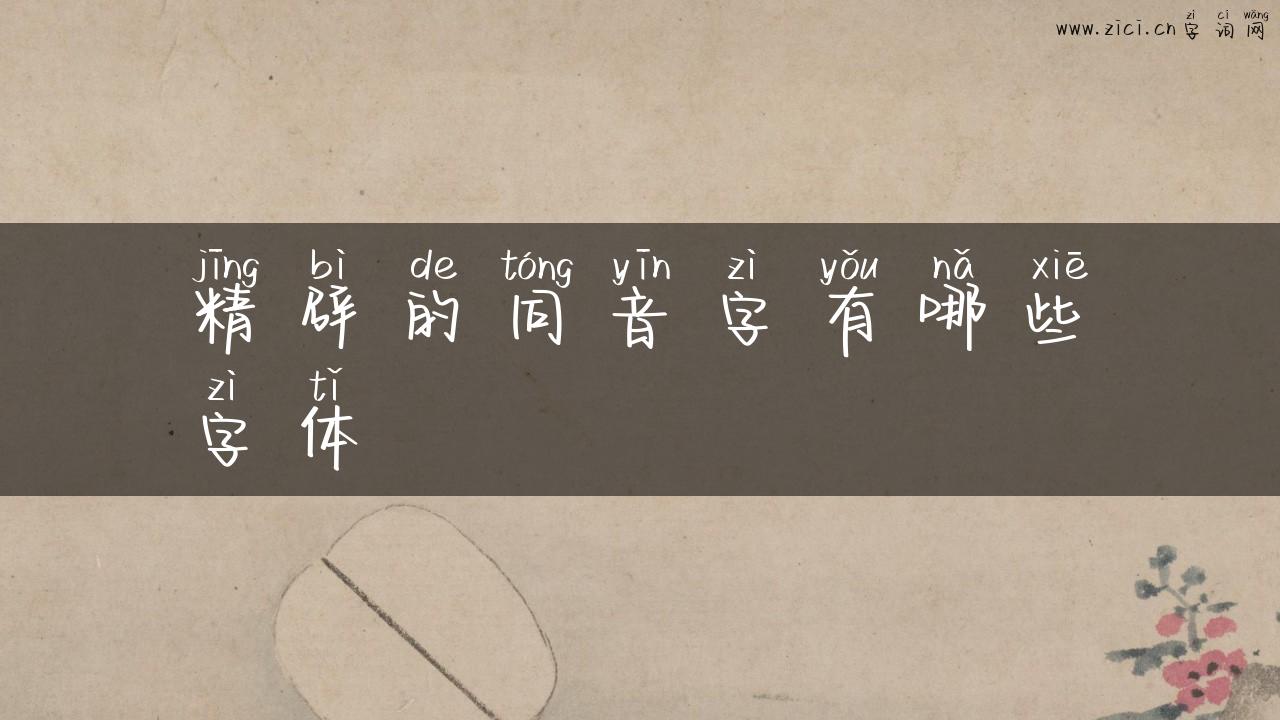 zì cí wǎng
www.zici.cn 字 词 网
jīng bì de tóng yīn zì yǒu nǎ xiē
精 辟 的 同 音 字 有 哪 些
zì tǐ
字 体